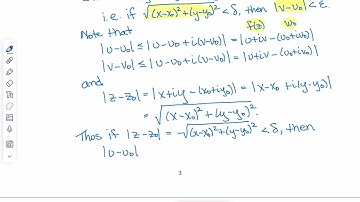 i.e. if √(x-x₀)²+(y-y₀)² < δ, then |v-v₀| < ε.
f(z) w₀
Note that
|u-u₀| ≤ |u-u₀ + i(v-v₀)| = |u+iv - (u₀+iv₀)|
|v-v₀| ≤ |u-u₀ + i(v-v₀)| = |u+iv - (u₀+iv₀)|
and
|z-z₀| = |x+iy - (x₀+iy₀)| = |x-x₀ + i(y-y₀)|
= √(x-x₀)² + (y-y₀)².
Thus if |z-z₀| = √(x-x₀)²+(y-y₀)² < δ, then
|u-u₀|
3